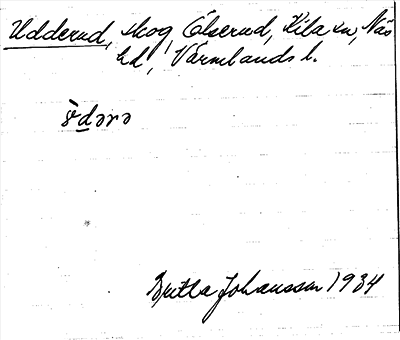 Udderud, skog, Ölserud, Kila sn, Näs
hd, Värmlands l.
ədərə
Britta Johansson 1934